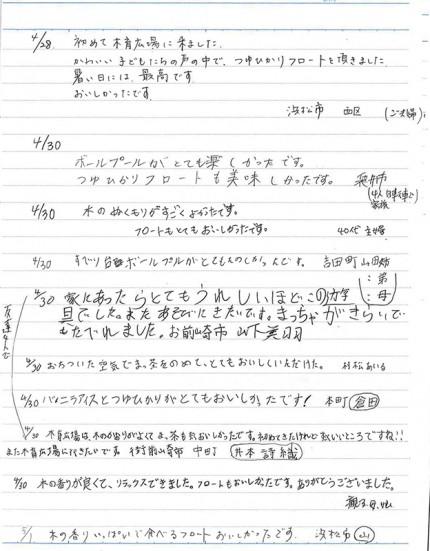 4/28. 初めて木育広場に来ました。
かわいい子どもたちの声の中で、つゆひかりフロートを頂きました。
暑い日には、最高です
おいしかったです
浜松市 西区 (ご夫婦)
4/30
ボールプールがとても楽しかったです。
つゆひかりフロートも美味しかったです。
家族
4/30 木のぬくもりがすごくよかったです。
フロートもとてもおいしかったです。 40代 主婦
4/30 すべり台とボールプールがとてもたのしかったです。 吉田町
:弟
:母
4/30 家にあったらとてもうれしいほどこの
具でした。またあそびにきたいです。まっちゃがきらいで
もたべれました。お前崎市 山下美羽
友達4人で
4/30 おちついた空気でま、茶をのめて、とてもおいしくいただけた。
4/30 バニラアイスとつゆひかりがとてもおいしかったです! 本町 倉田
4/30 木育広場は、木のかおりがよくてま、茶もおいしかったです。初めてきたけれどいいところですね!!
また木育広場に行きたいです
4/30 木の香りが良くて、リラックスできました。フロートもおいしかったです。ありがとうございました。
5/1 木の香りいっぱいで食べるフロートおいしかったです。 浜松市 山